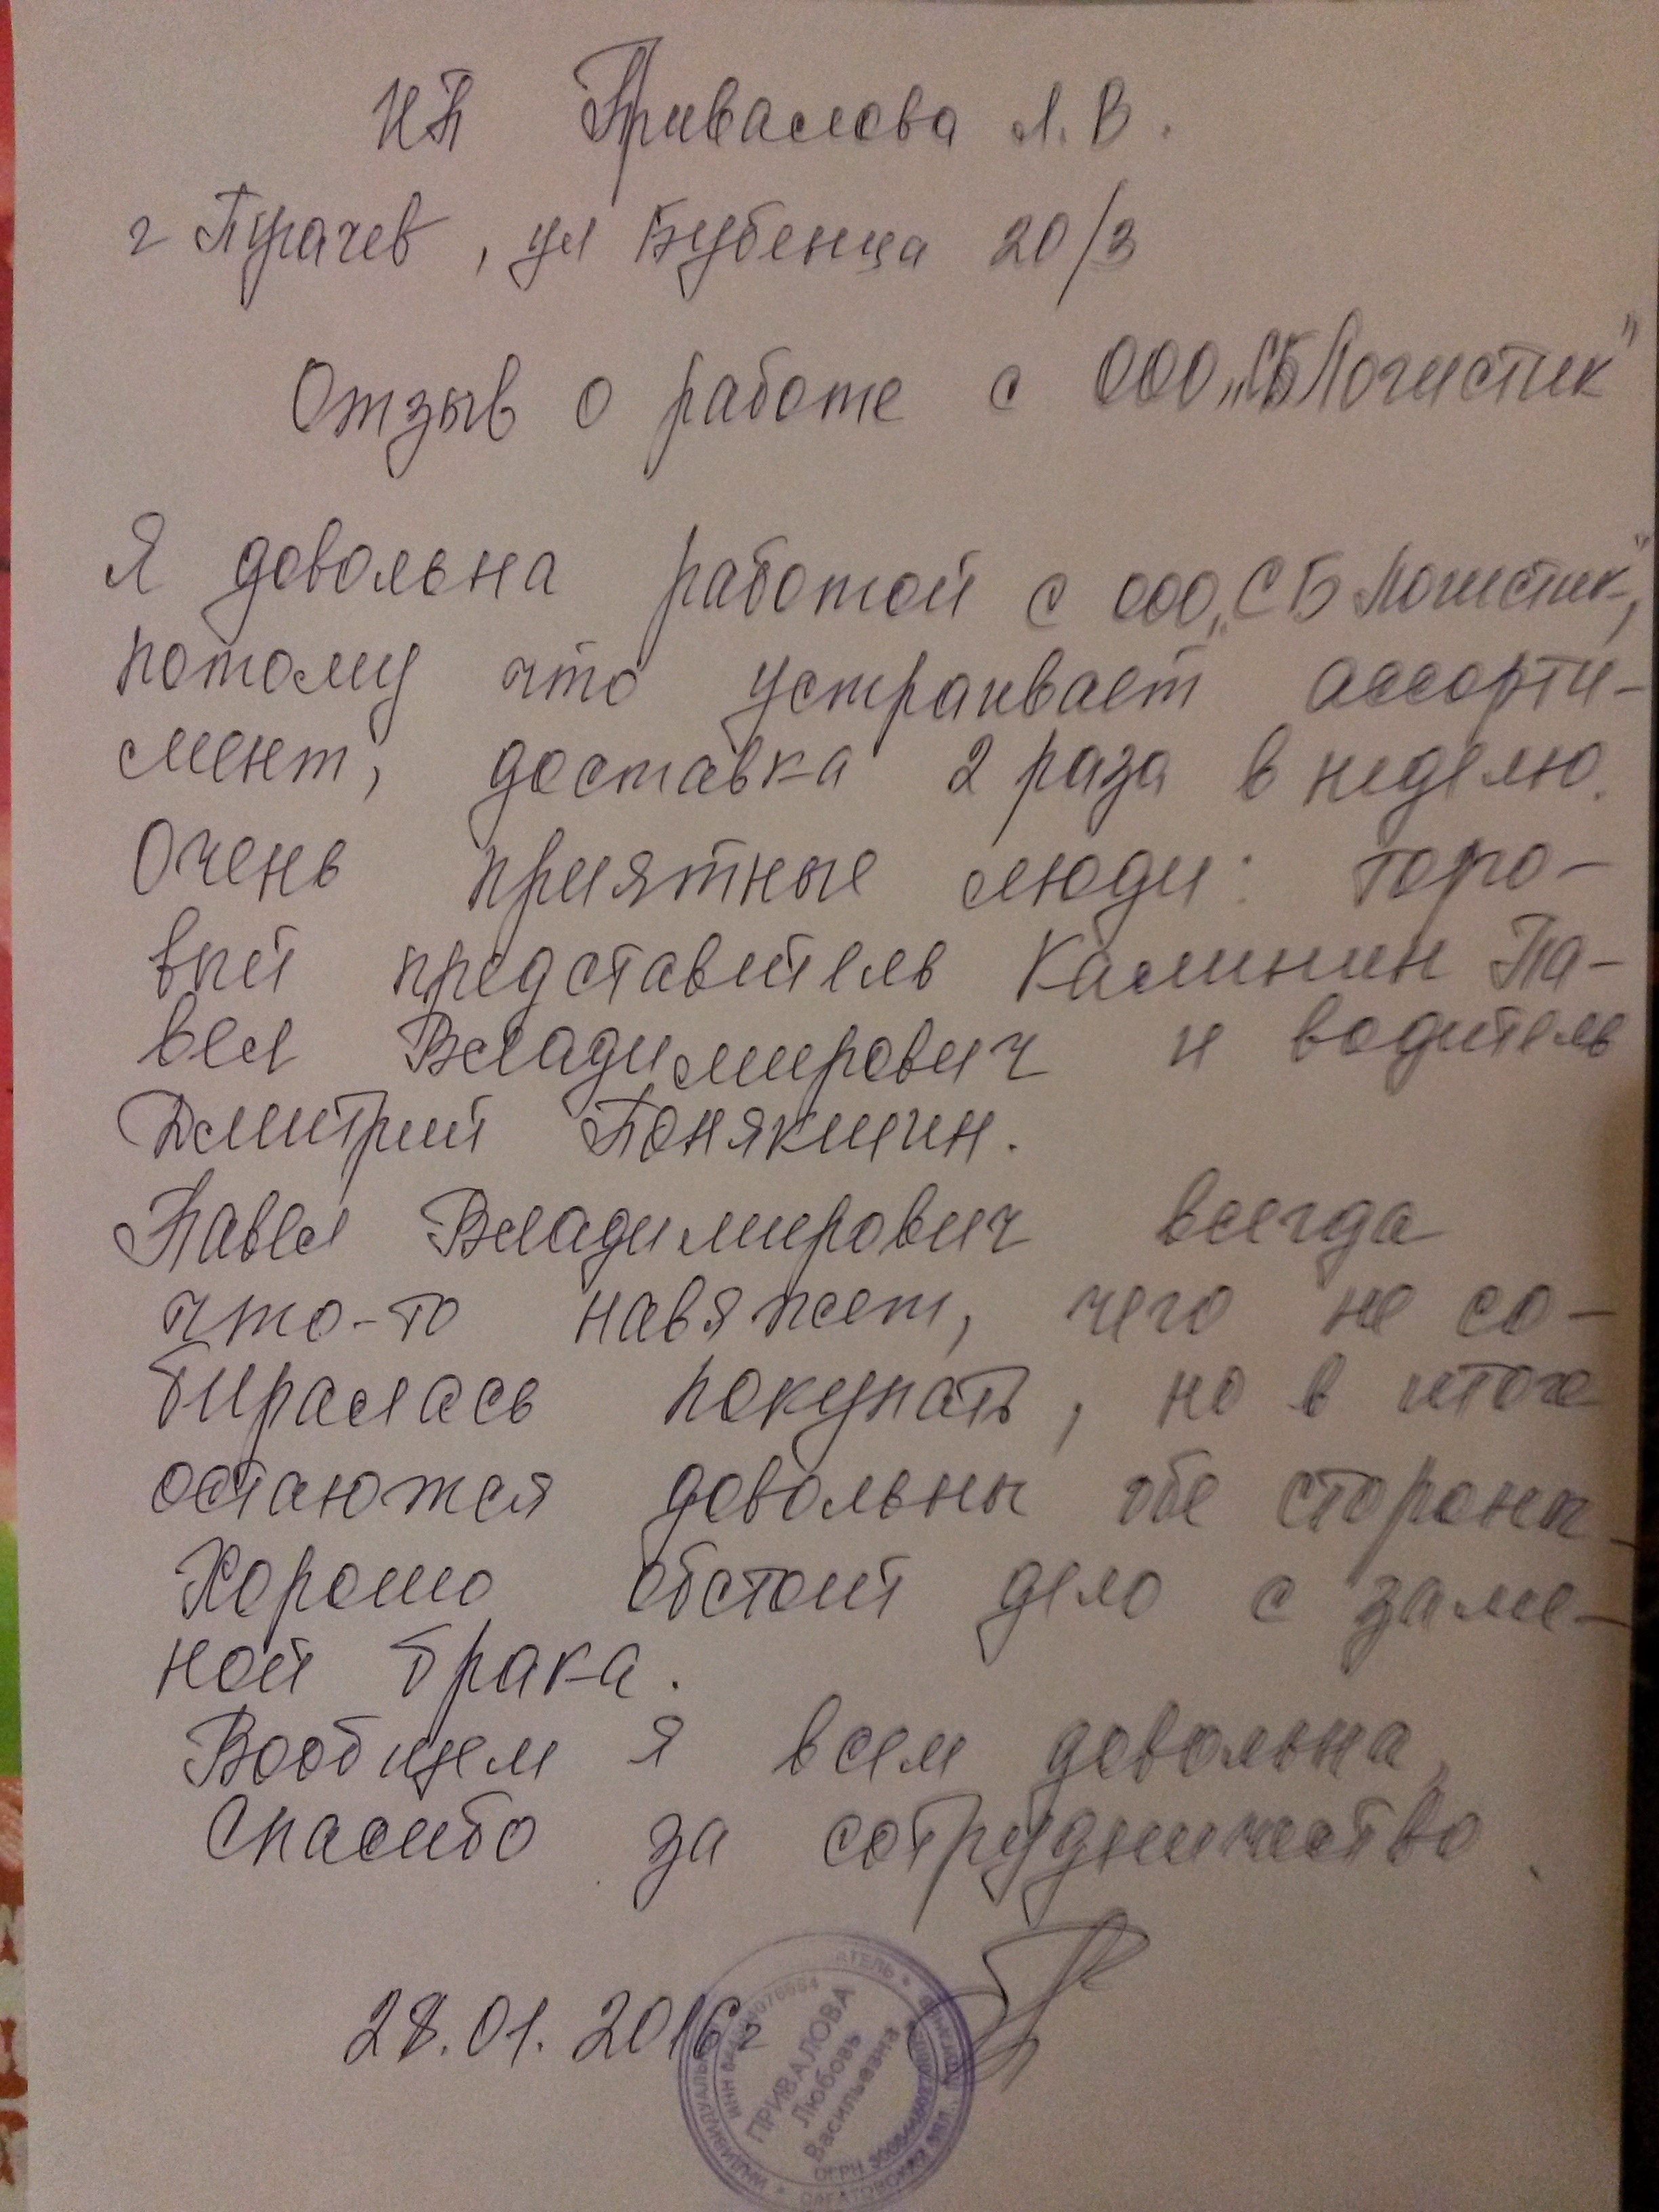 ИП Привалова Л. В.
г Пугачев, ул Бубенца 20/3
Отзыв о работе с ООО „СБ Логистик"
Я довольна работой с ООО „СБ Логистик",
потому что устраивает ассорти-
мент, доставка 2 раза в неделю.
Очень приятные люди: торго-
вый представитель Калинин Па-
вел Владимирович и водитель
Дмитрий Понякшин.
Павел Владимирович всегда
что-то навяжет, чего не со-
биралась покупать, но в итоге
остаются довольны обе стороны.
Хорошо обстоит дело с заме-
ной брака.
Вообщем я всем довольна,
Спасибо за сотрудничество.
28.01.2016г
ПРИВАЛОВА
Любовь
Васильевна
ИНДИВИДУАЛЬНЫЙ
ИНН
ОГРН
САРАТОВСКАЯ ОБЛ.